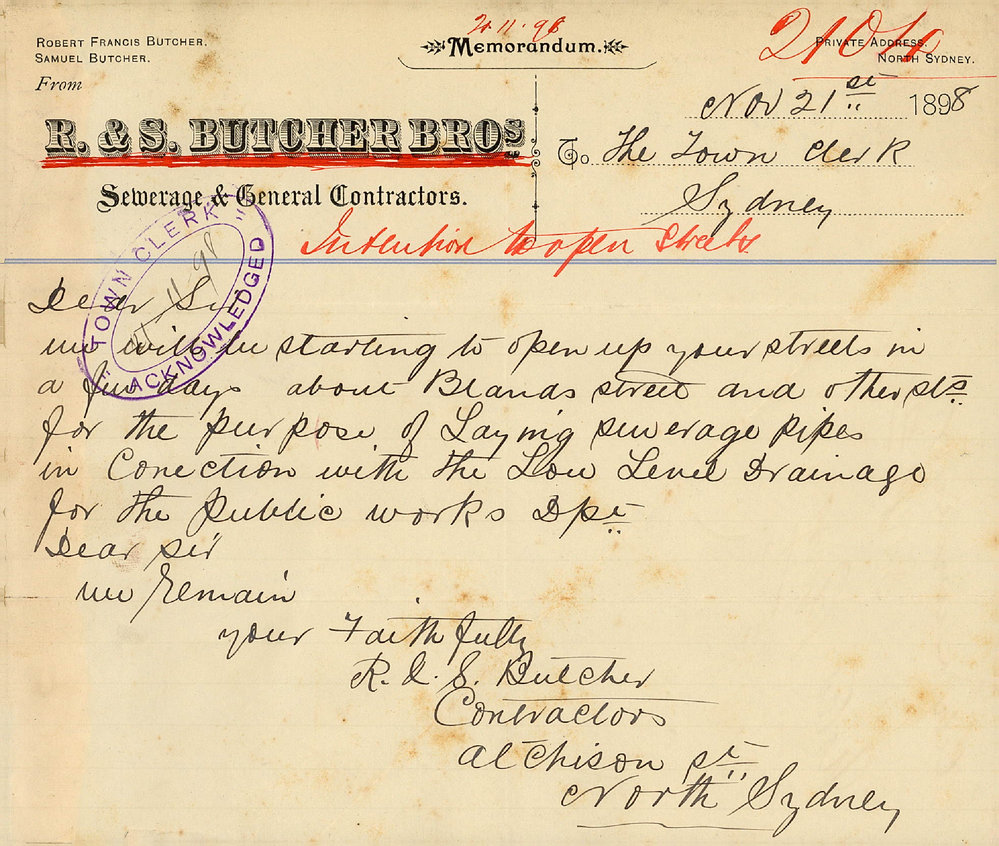 ROBERT FRANCIS BUTCHER.
SAMUEL BUTCHER.
21.11.98
Memorandum.
2104
PRIVATE ADDRESS.
NORTH SYDNEY.
From
R. & S. BUTCHER BROS.
Sewerage & General Contractors.
Nov 21st 1898
To The Town Clerk
Sydney
Intention to open Streets
TOWN CLERK
11 98
ACKNOWLEDGED
Dear Sir
we will be starting to open up your streets in
a few days about Blands street and other sts
for the purpose of Laying sewerage pipes
in Conection with the Low Level Drainage
for the public works Dpt
Dear sir
we remain
your Faithfully
R. & S. Butcher
Contractors
atchison st
North Sydney